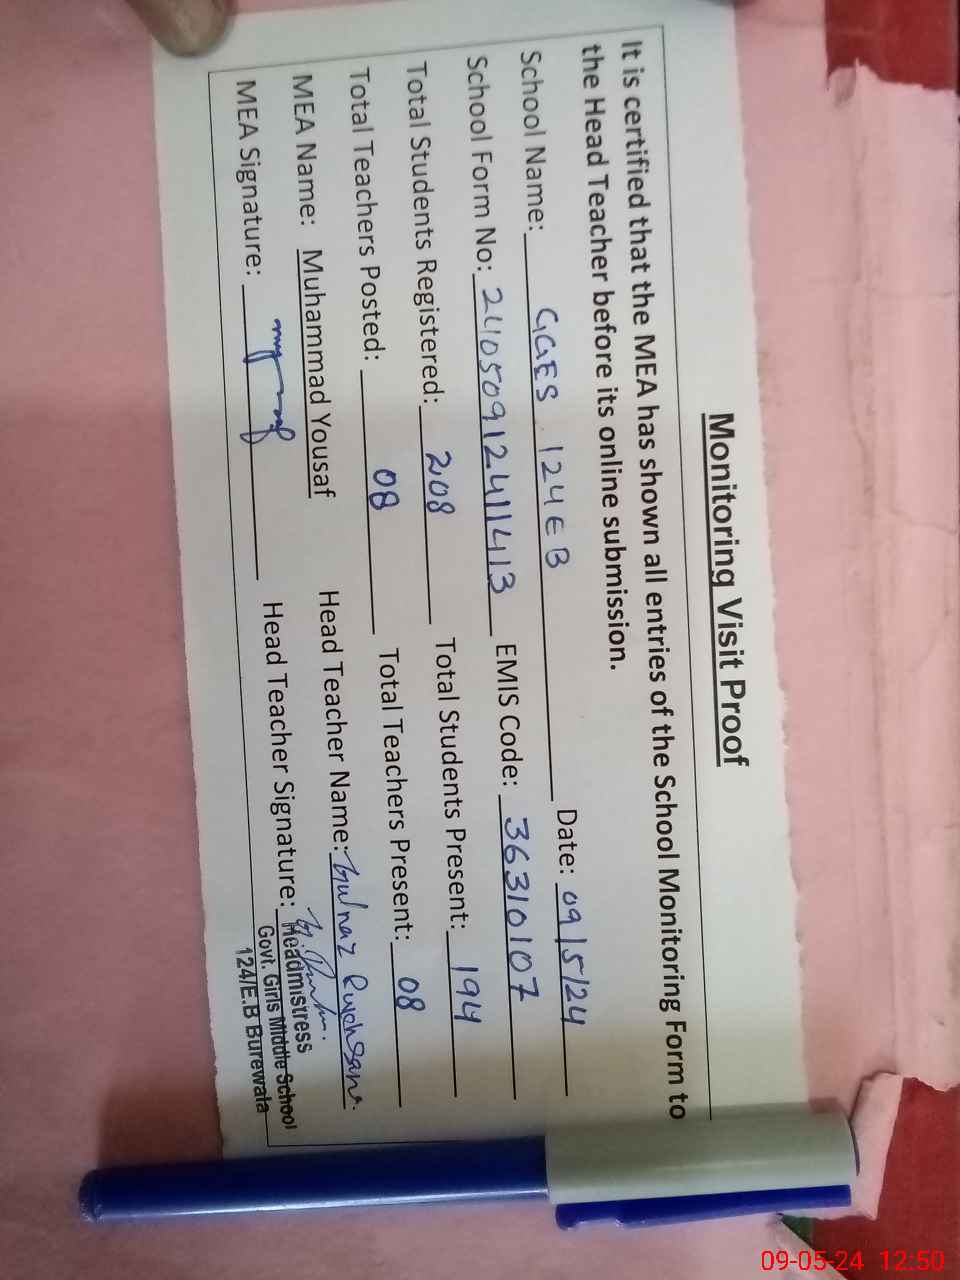 Monitoring Visit Proof
It is certified that the MEA has shown all entries of the School Monitoring Form to
the Head Teacher before its online submission.
School Name: GGES 124 EB Date: 09/5/24
School Form No: 24050912411413 EMIS Code: 36310107
Total Students Registered: 208 Total Students Present: 194
Total Teachers Posted: 08 Total Teachers Present: 08
MEA Name: Muhammad Yousaf Head Teacher Name: Gulnaz
MEA Signature: Head Teacher Signature:
Headmistress
Govt. Girls Middle School
124/E.B Burewala
09-05-24 12:50